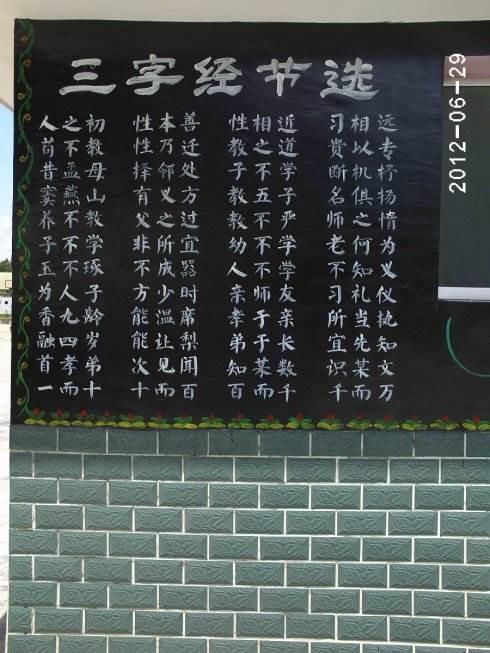 三字经节选
人之初 性本善 性相近 习相远
苟不教 性乃迁 教之道 贵以专
昔孟母 择邻处 子不学 断机杼
窦燕山 有义方 教五子 名俱扬
养不教 父之过 教不严 师之情
子不学 非所宜 幼不学 老何为
玉不琢 不成器 人不学 不知义
为人子 方少时 亲师友 习礼仪
香九龄 能温席 孝于亲 所当执
融四岁 能让梨 弟于长 宜先知
首孝弟 次见闻 知某数 识某文
一而十 十而百 百而千 千而万
2012-06-29